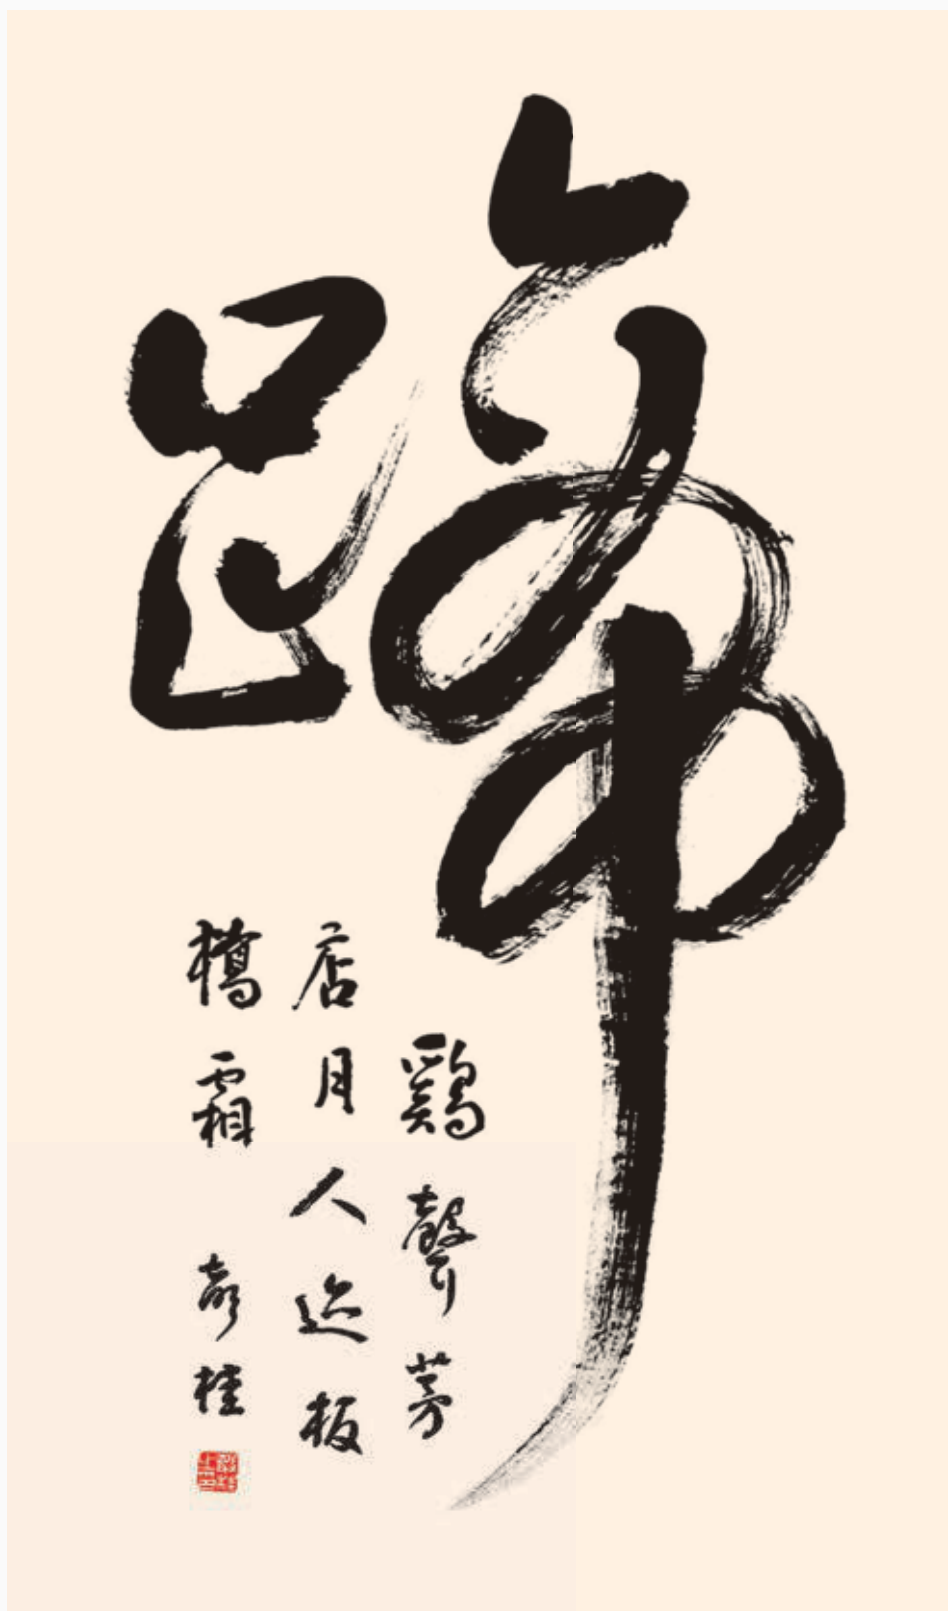 蹄
鷄聲茅
店月人迹板
橋霜
彭桂